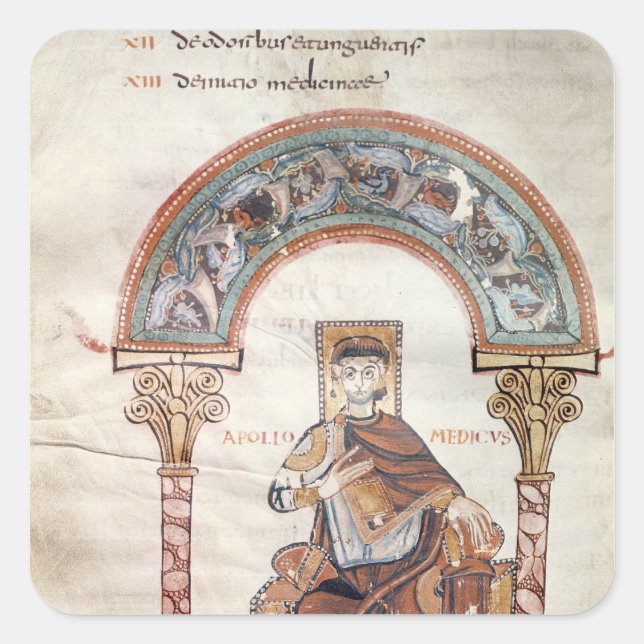 XII deodoribus etunguentis
XIII deinitio medicinae
APOLLO MEDICVS